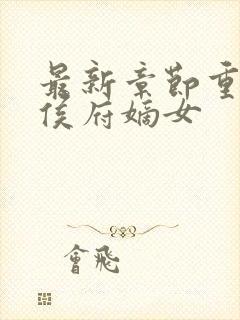 最新章节重
侯府嫡女
會飛